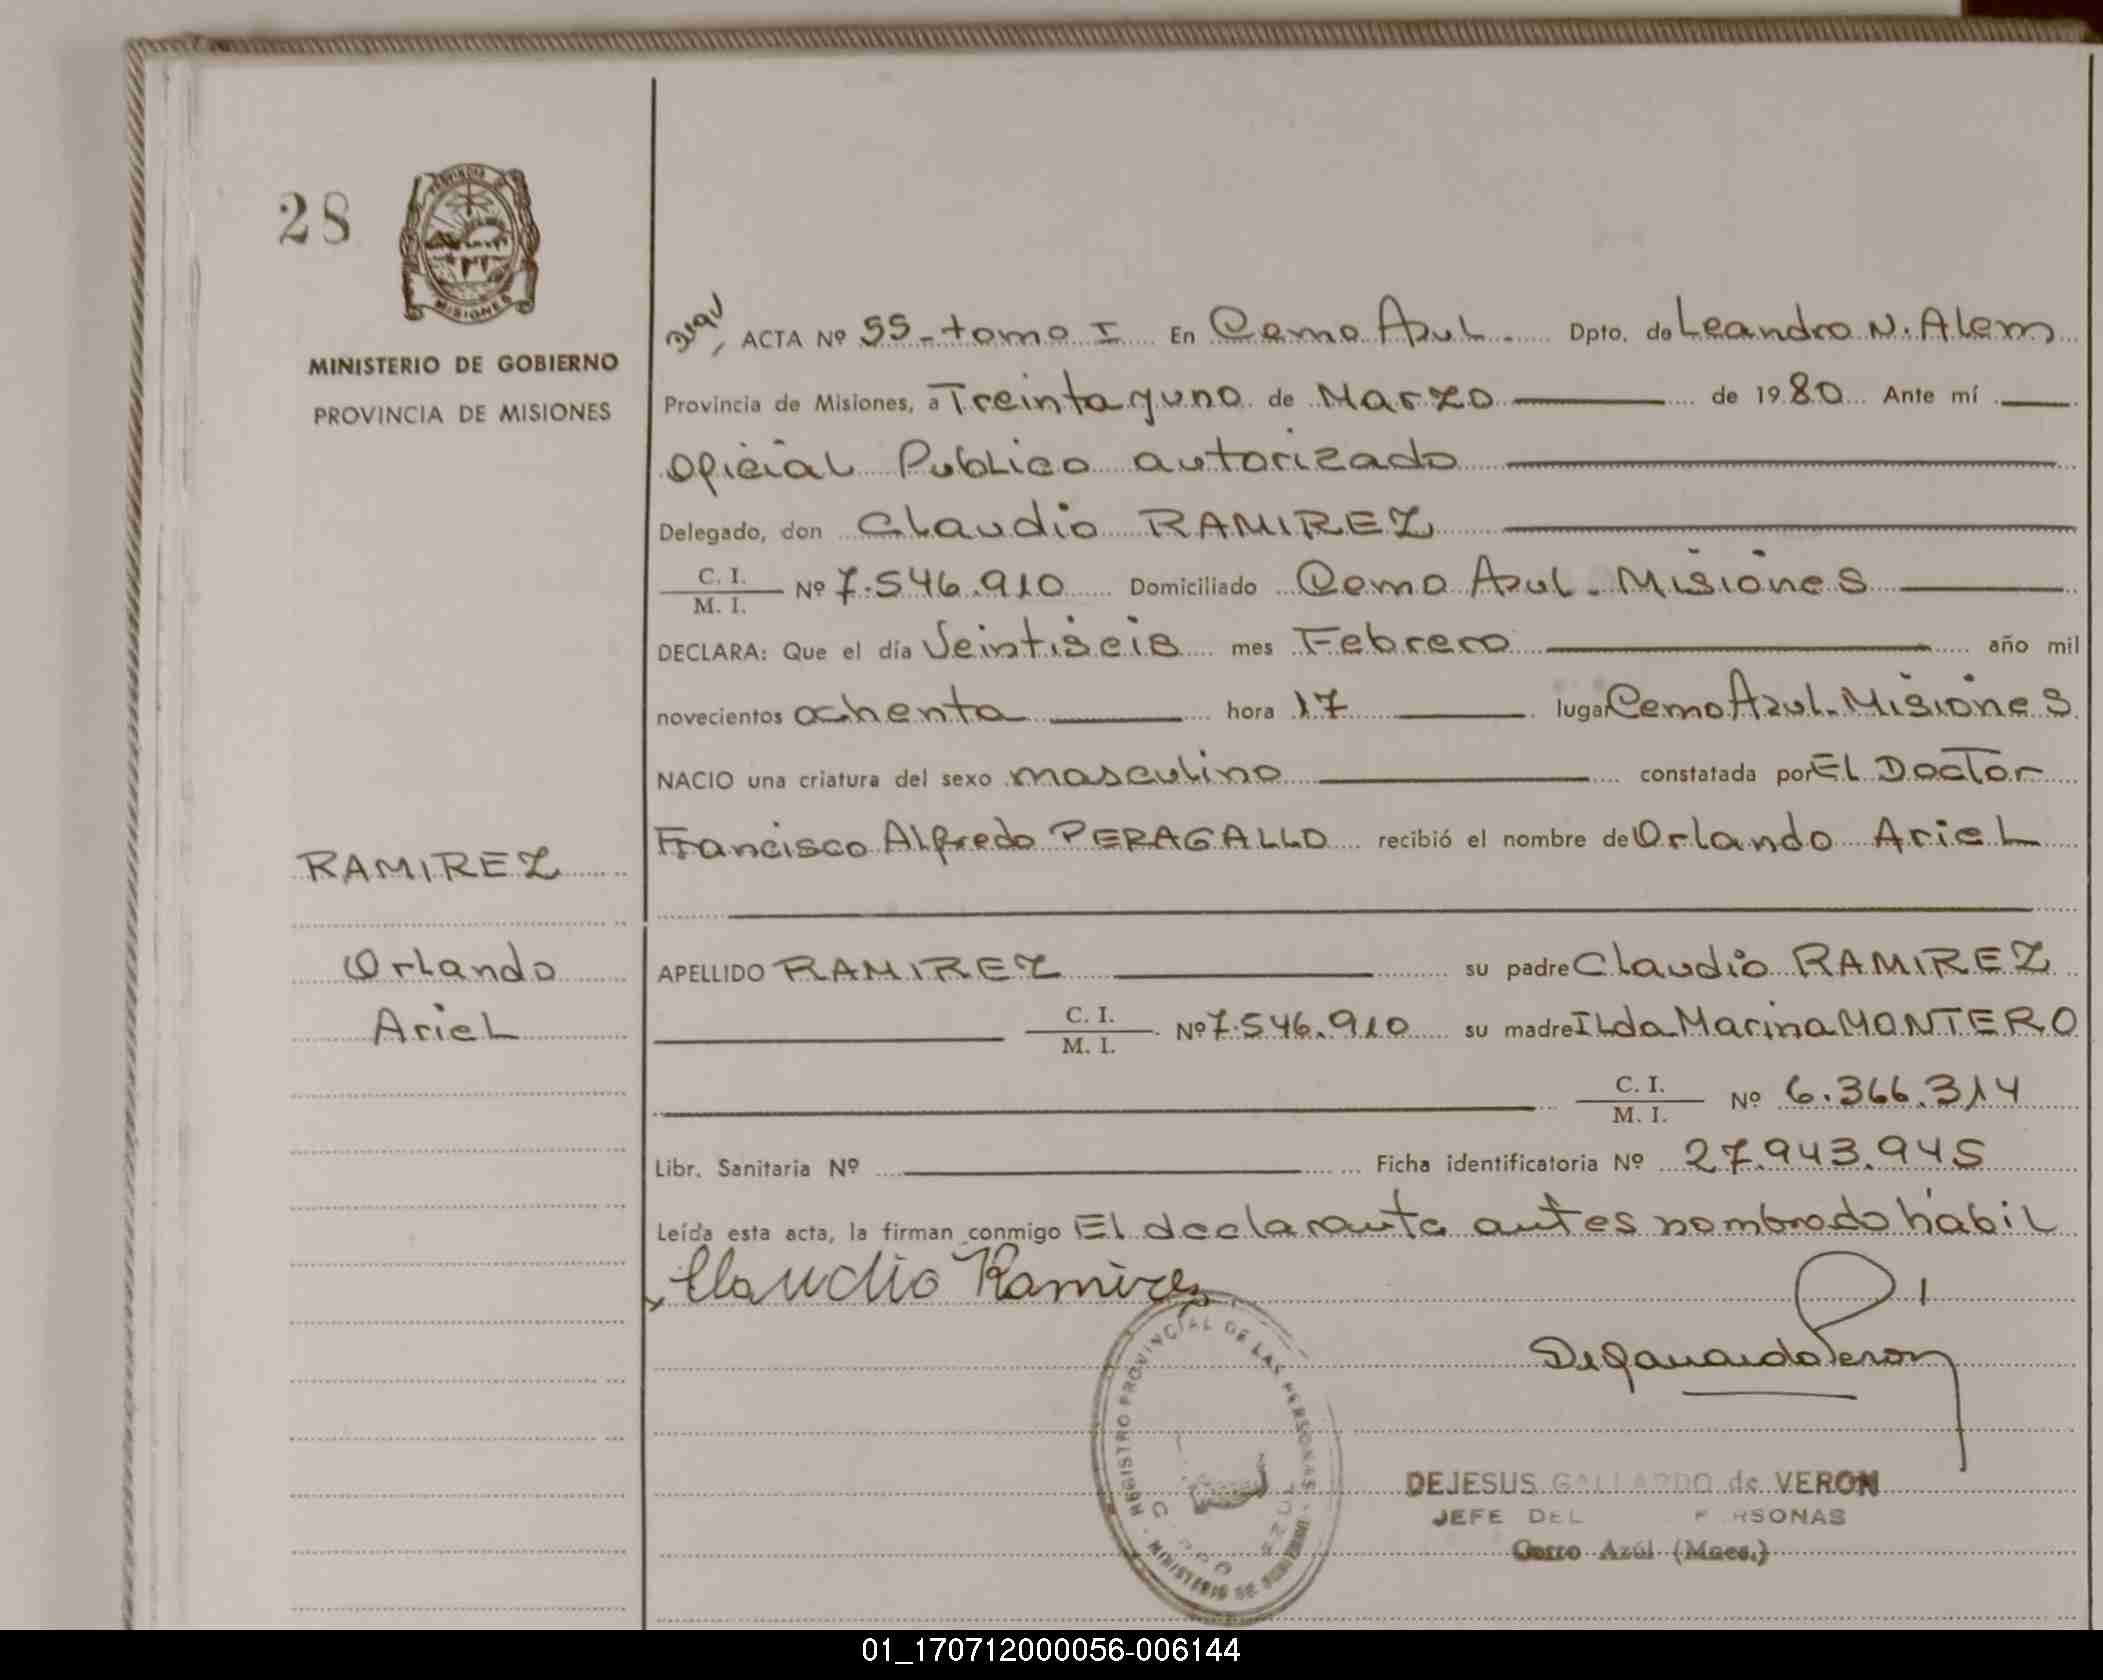 28
PROVINCIA DE
MISIONES
MINISTERIO DE GOBIERNO
PROVINCIA DE MISIONES
RAMIREZ
Orlando
Ariel
ACTA Nº 55-tomo I En Cerro Azul. Dpto. de Leandro N. Alem
Provincia de Misiones, a Treinta y uno de Marzo de 1980 Ante mí
Oficial Publico autorizado
Delegado, don Claudio RAMIREZ
C. I.
M. I.
Nº 7.546.910 Domiciliado Cerro Azul. Misiones
DECLARA: Que el día Veintiseis mes Febrero año mil
novecientos ochenta hora 17 lugar Cerro Azul. Misiones
NACIO una criatura del sexo masculino constatada por El Doctor
Francisco Alfredo PERAGALLO recibió el nombre de Orlando Ariel
APELLIDO RAMIREZ su padre Claudio RAMIREZ
C. I.
M. I.
Nº 7.546.910 su madre Ilda Marina MONTERO
C. I.
M. I.
Nº 6.366.314
Libr. Sanitaria Nº Ficha identificatoria Nº 27.943.945
Leída esta acta, la firman conmigo El declarante antes nombrado hábil
Claudio Ramirez
REGISTRO PROVINCIAL DE LAS PERSONAS
MINISTERIO DE GOBIERNO
DEJESUS GALLARDO de VERON
JEFE DEL
Cerro Azúl (Mnes.)
01_170712000056-006144